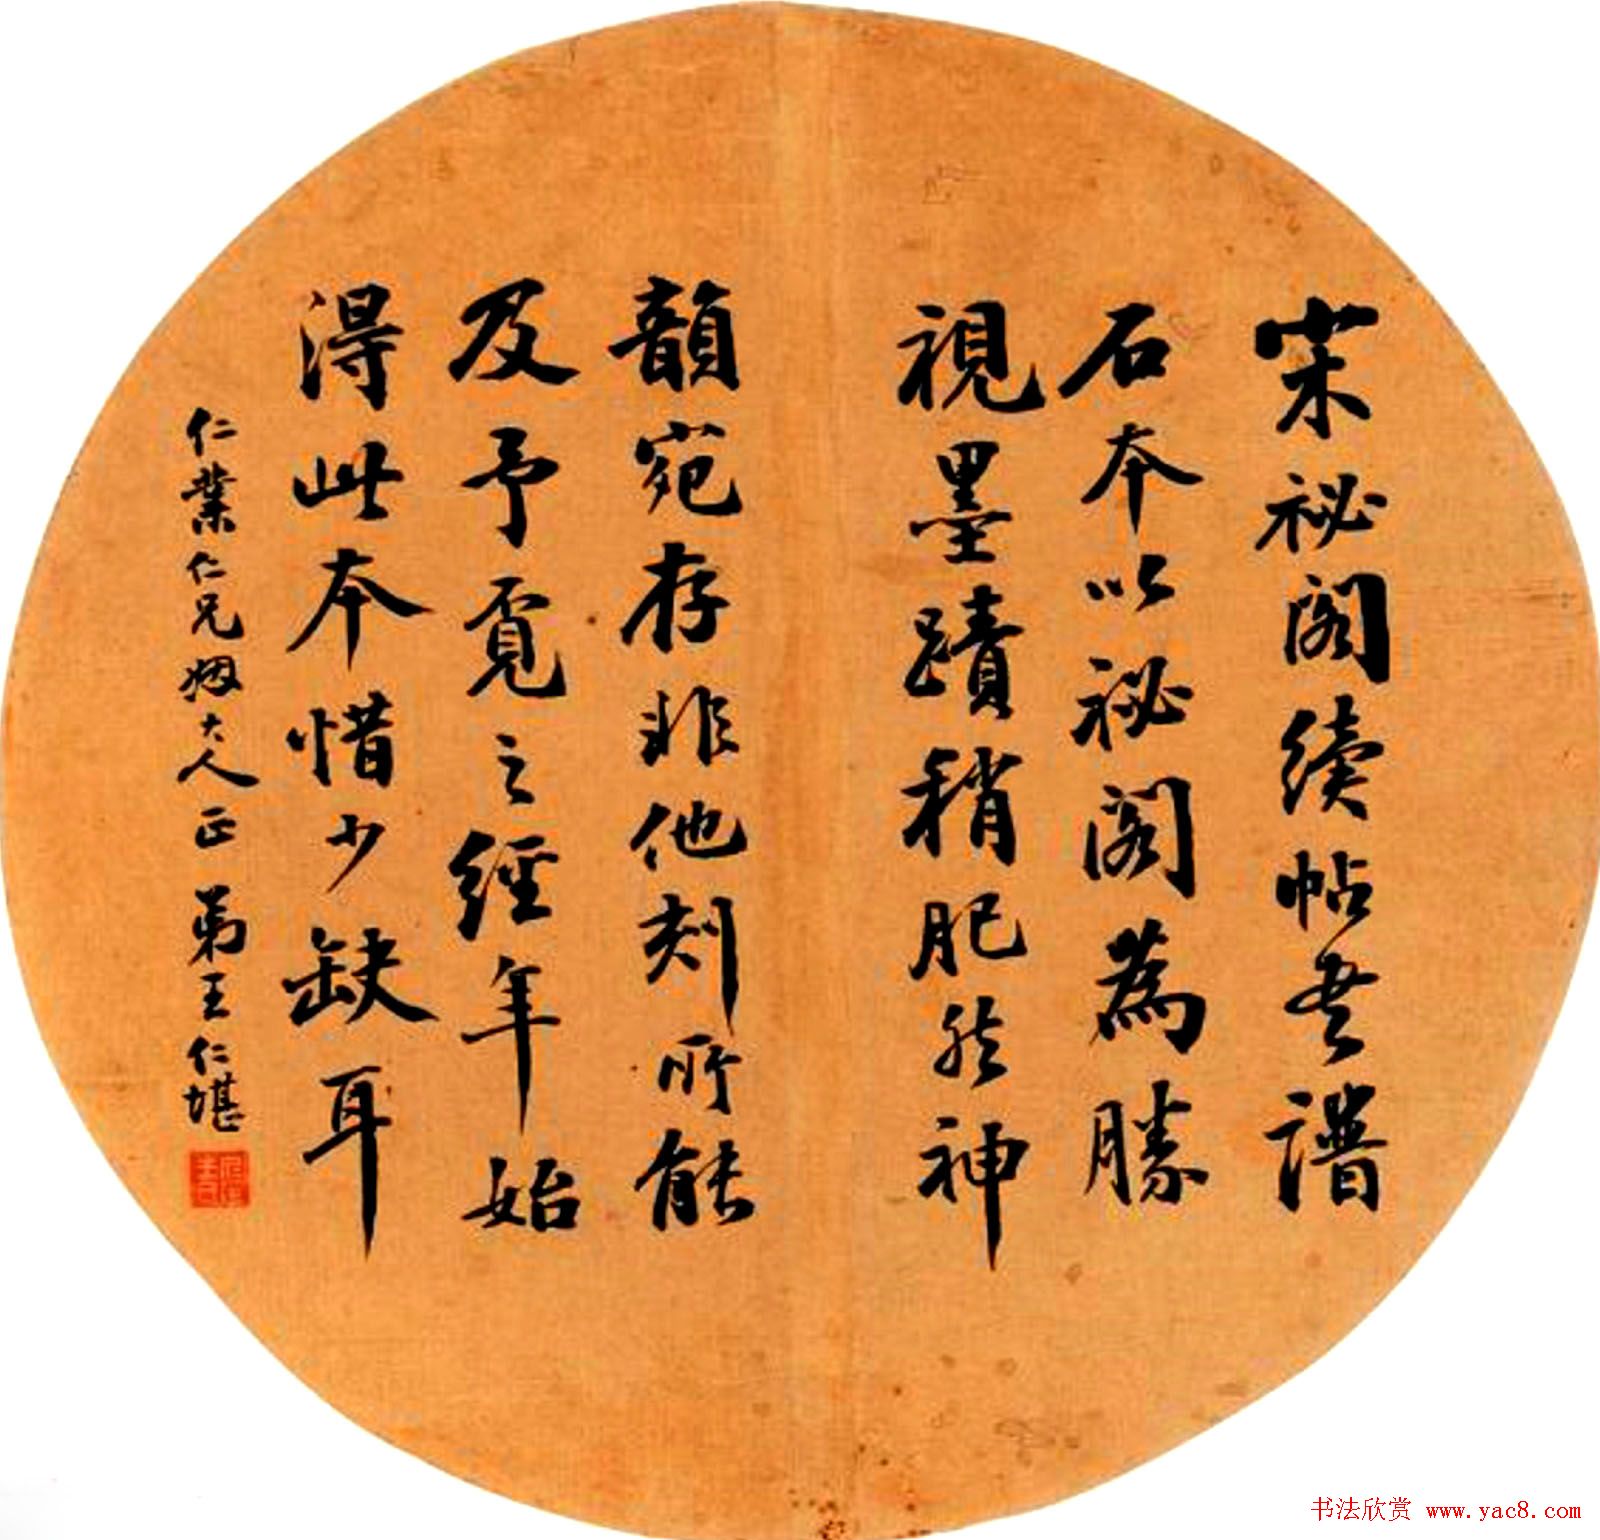 宋祕閣續帖書譜
石本以祕閣為勝
視墨蹟稍肥然神
韻宛存非他刻所能
及予覓之經年始
得此本惜少缺耳
仁業仁兄姻大人正 弟王仁堪
书法欣赏 www.yac8.com